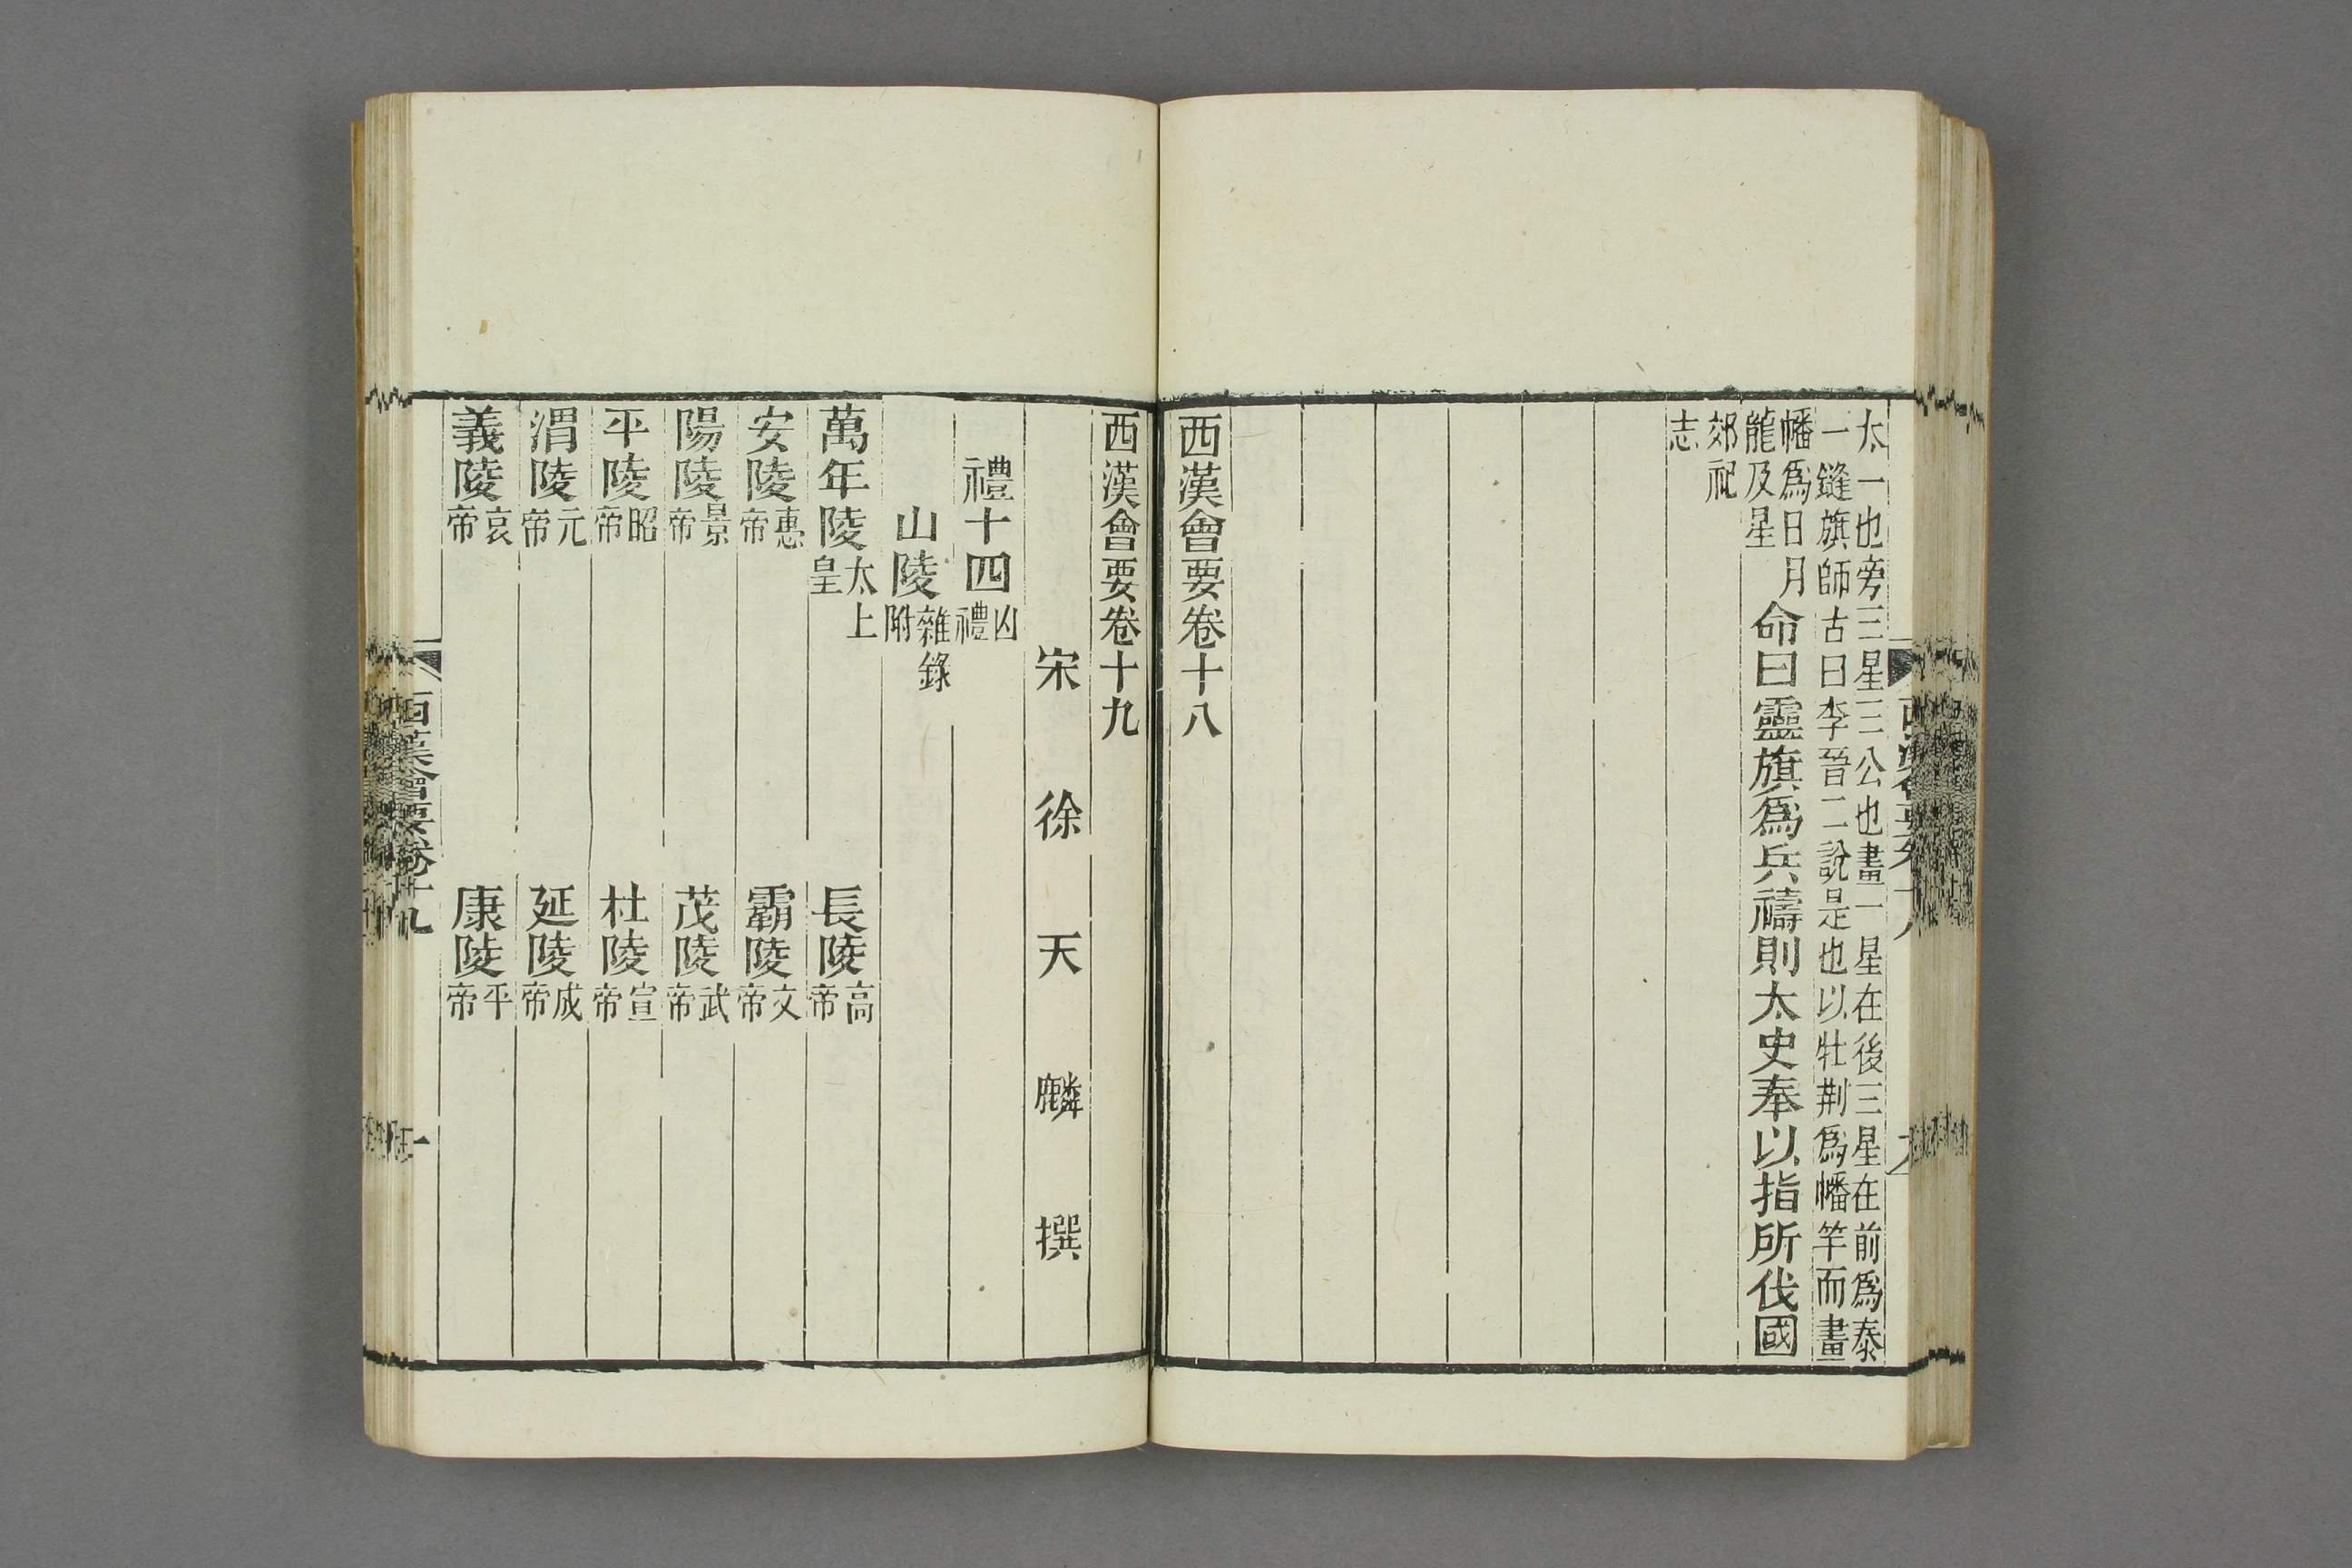 太一也旁三星三公也畫一星在後三星在前爲泰
一縫旗師古曰李晉二說是也以牡荆爲幡竿而畫
幡爲日月
龍及星
命曰靈旗爲兵禱則太史奉以指所伐國
郊祀
志
西漢會要卷十八
西漢會要卷十九
宋 徐 天 麟 撰
禮十四凶禮
山陵雜錄附
萬年陵太上皇 長陵高帝
安陵惠帝 霸陵文帝
陽陵景帝 茂陵武帝
平陵昭帝 杜陵宣帝
渭陵元帝 延陵成帝
義陵哀帝 康陵平帝
西漢會要卷十九
一